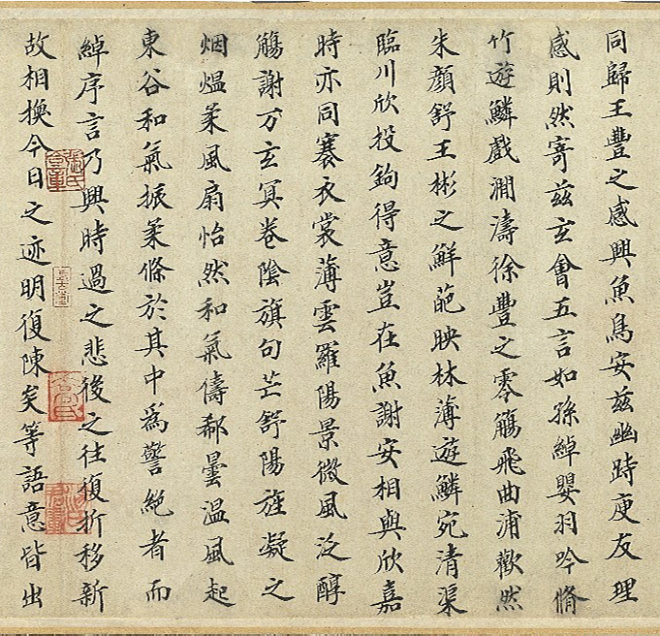 同歸王豐之感興魚鳥安茲幽跱庾友理
感則然寄茲玄會五言如孫綽嬰羽吟脩
竹遊鱗戲澗濤徐豐之零觴飛曲浦歡然
朱顏舒王彬之鮮葩映林薄遊鱗宛清渠
臨川欣投鉤得意豈在魚謝安相與欣嘉
時亦同褰衣裳薄雲羅陽景微風泛醇
觴謝万玄冥卷陰旗句芒舒陽旌凝之
烟熅柔風扇怡然和氣儔郗曇溫風起
東谷和氣振柔條於其中為警絕者而
綽序言乃興時過之悲後之往復折移新
故相換今日之迹明復陳矣等語意皆出